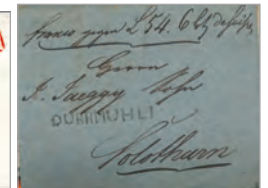 franco gegen L 54. 6
Herrn
J. Jaeggy Sohn
DÜRRMÜHLI
Solothurn